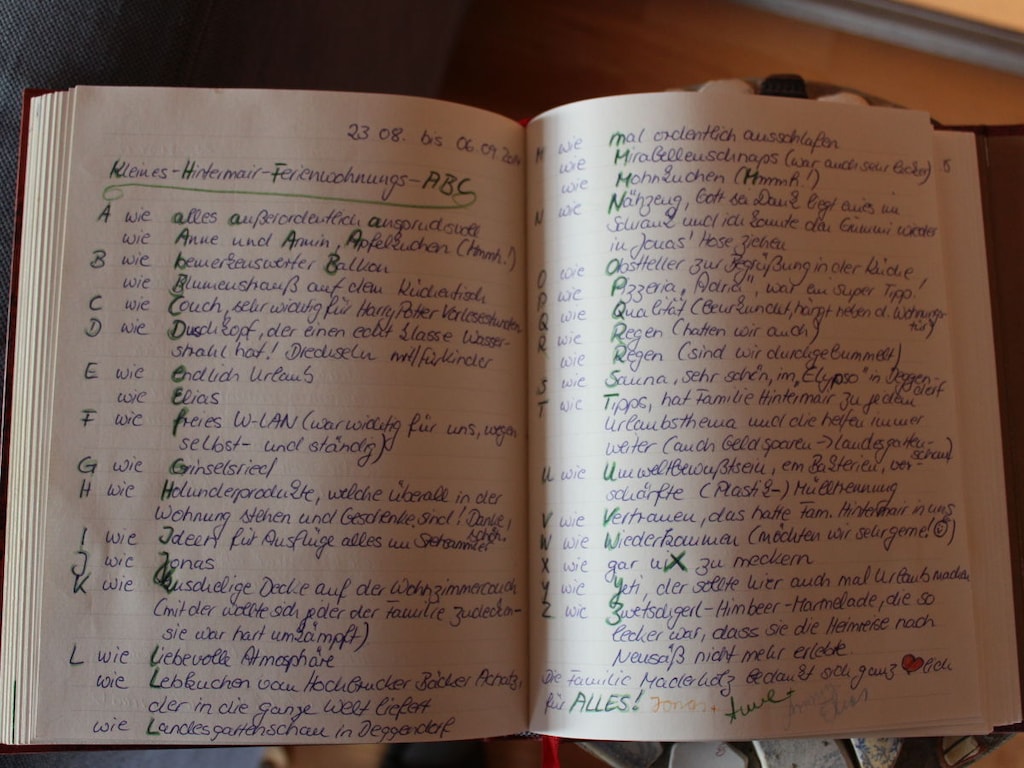 23.08. bis 06.09.2014
Kleines-Hintermair-Ferienwohnungs-ABC
A wie alles außerordentlich anspruchsvoll
wie Anne und Armin, Apfelkuchen (Hmmh!)
B wie bemerkenswerter Balkon
wie Blumenstrauß auf dem Küchentisch
C wie Couch, sehr wichtig für Harry Potter Vorlesestunden
D wie Duschkopf, der einen echt klasse Wasser-
strahl hat! Drechseln mit/für Kinder
E wie endlich Urlaub
wie Elias
F wie freies W-LAN (war wichtig für uns, wegen
selbst- und ständig)
G wie Grinselsried
H wie Holunderprodukte, welche überall in der
Wohnung stehen und Geschenke sind! Danke,
schön.
I wie Ideen für Ausflüge alles im
J wie Jonas
K wie kuschelige Decke auf der Wohnzimmercouch
(mit der wollte sich jeder der Familie zudecken-
sie war hart umkämpft)
L wie Liebevolle Atmosphäre
wie Lebkuchen vom Hochbrucker Bäcker
der in die ganze Welt liefert
wie Landesgartenschau in Deggendorf
M wie mal ordentlich ausschlafen
wie Mirabellenschnaps (war auch sehr lecker)
wie Mohnkuchen (Hmmmh!)
N wie Nähzeug, Gott sei Dank liegt eines im
Schrank und ich konnte den Gummi wieder
in Jonas' Hose ziehen
O wie Obstteller zur Begrüßung in der Küche!
P wie Pizzeria „Adria", war ein super Tipp!
Q wie Qualität (Beurkundet, hängt neben d. Wohnungs-
tür)
R wie Regen (hatten wir auch)
wie Regen (sind wir durchgebummelt)
S wie Sauna, sehr schön, im „Elypso" in Deggen-
dorf
T wie Tipps, hat Familie Hintermair zu jedem
Urlaubsthema und die helfen immer
weiter (auch Geld sparen → Landesgarten-
schau)
U wie Umweltbewußtsein, em Bakterien, ver-
schärfte (Plastik-) Mülltrennung
V wie Vertrauen, das hatte Fam. Hintermair in uns
W wie Wiederkommen (möchten wir sehr gerne! ☺)
X wie gar niX zu meckern
Y wie Yeti, der sollte hier auch mal Urlaub machen
Z wie Zwetschgerl-Himbeer-Marmelade, die so
lecker war, dass sie die Heimreise nach
Neusäß nicht mehr erlebte.
Die Familie Maderholz bedankt sich ganz ❤lich
für ALLES! Jonas, Anne +
Armin
Elias